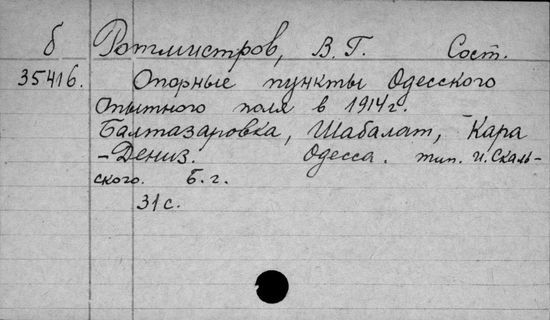 б Ротмистров, В. Г. Сост.
35416. Опорные пункты Одесского
опытного поля в 1914 г.
Балтазаровка, Шабалат, Кара
-Дениз. Одесса. тип. И. Скаль-
ского. Б. г.
31 с.